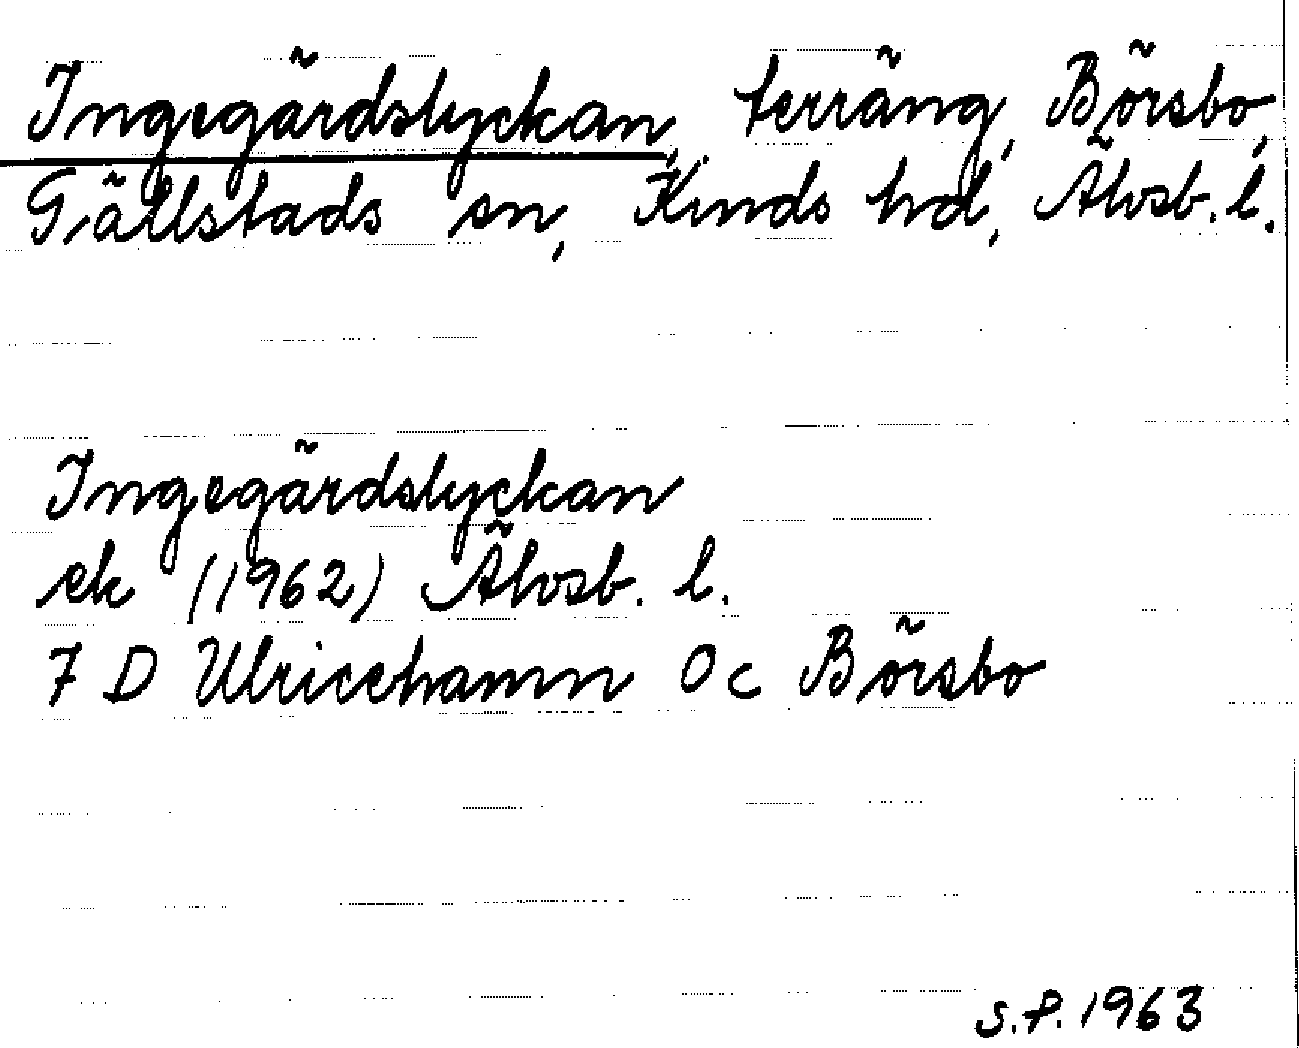 Ingegärdslyckan, terräng, Börsbo,
Gällstads sn, Kinds hd, Älvsb. l.
Ingegärdslyckan
ek (1962) Älvsb. l.
7 D Ulricehamn 0c Börsbo
S.P. 1963